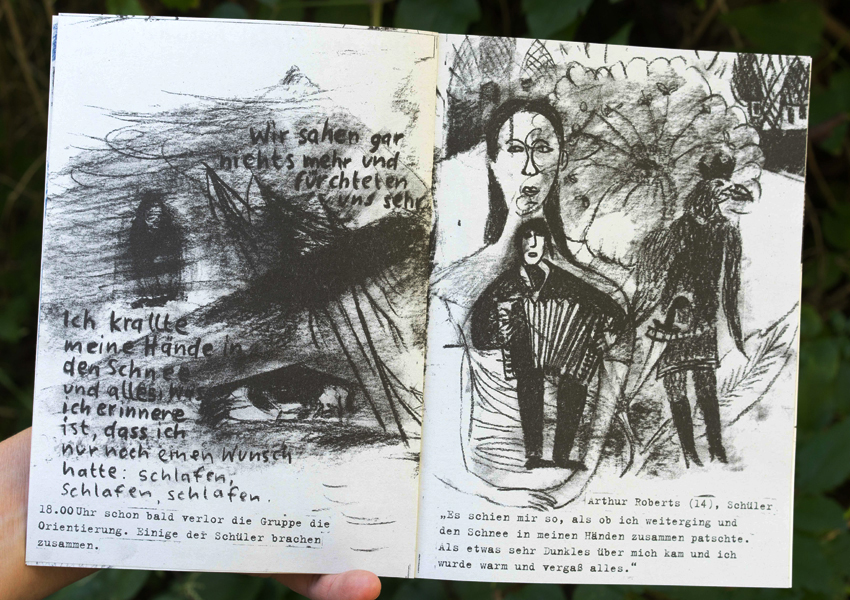 Wir sahen gar
nichts mehr und
fürchteten
uns sehr
Ich krallte
meine Hände in
den Schnee
und alles, was
ich erinnere
ist, dass ich
nur noch einen Wunsch
hatte: schlafen,
schlafen, schlafen.
18.00 Uhr schon bald verlor die Gruppe die
Orientierung. Einige der Schüler brachen
zusammen.
Arthur Roberts (14), Schüler
„Es schien mir so, als ob ich weiterging und
den Schnee in meinen Händen zusammen patschte.
Als etwas sehr Dunkles über mich kam und ich
wurde warm und vergaß alles.“